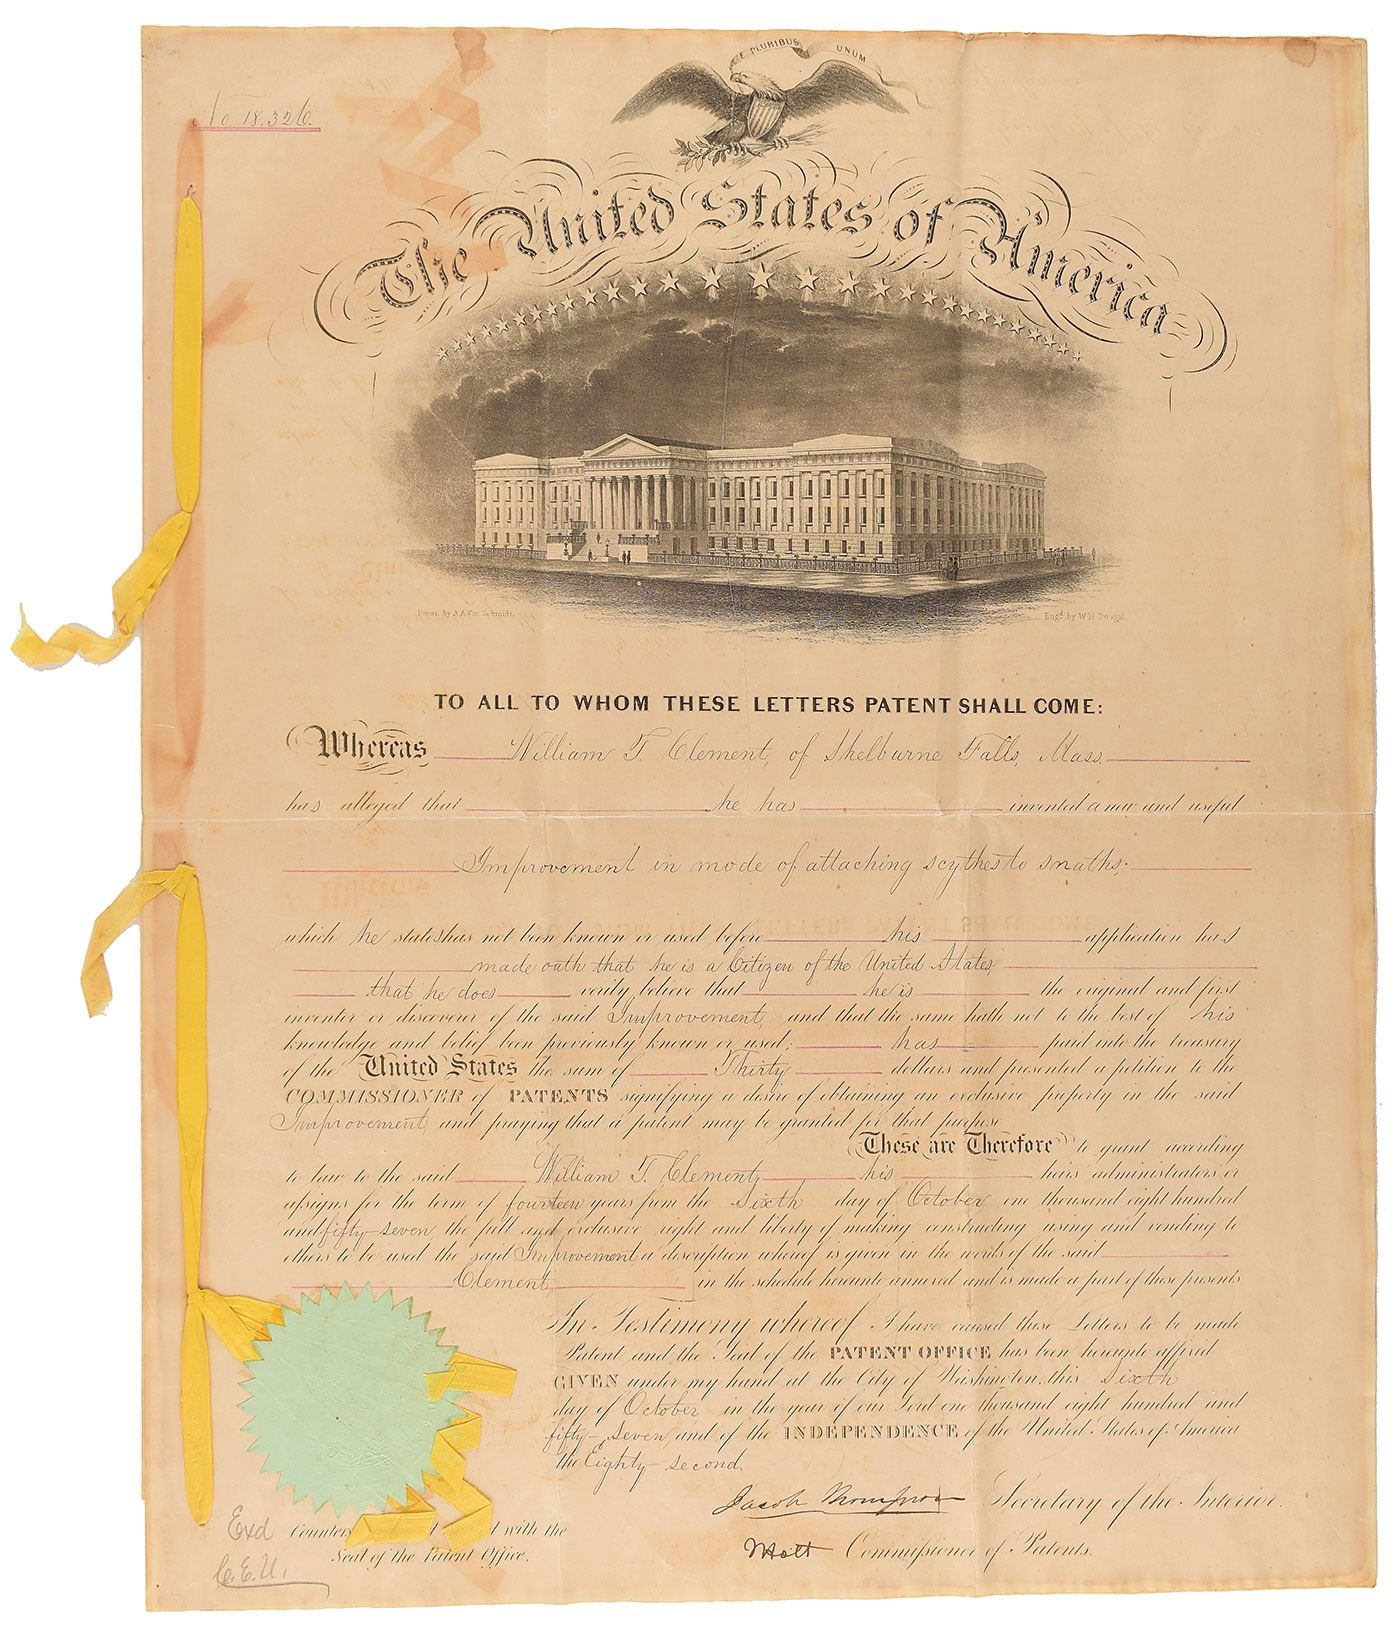 E PLURIBUS UNUM
No. 18.326.
The United States of America
Engd. by W.H. Dougal
TO ALL TO WHOM THESE LETTERS PATENT SHALL COME:
Whereas William T. Clement, of Shelburne Falls, Mass.
has alleged that he has invented a new and useful
Improvement in mode of attaching scythes to snaths.
which he states has not been known or used before his application has
made oath that he is a Citizen of the United States
that he does verily believe that he is the original and first
inventor or discoverer of the said Improvement, and that the same hath not to the best of his
knowledge and belief been previously known or used; has paid into the treasury
of the United States the sum of Thirty dollars and presented a petition to the
COMMISSIONER of PATENTS signifying a desire of obtaining an exclusive property in the said
Improvement, and praying that a patent may be granted for that purpose
These are Therefore to grant according
to law to the said William T. Clement, his heirs administrators or
assigns for the term of fourteen years from the Sixth day of October one thousand eight hundred
and fifty-seven the full and exclusive right and liberty of making constructing using and vending to
others to be used the said Improvement a description whereof is given in the words of the said
Clement in the schedule hereunto annexed and is made a part of these presents
In Testimony whereof I have caused these Letters to be made
Patent and the Seal of the PATENT OFFICE has been hereunto affixed
GIVEN under my hand at the City of Washington, this Sixth
day of October in the year of our Lord one thousand eight hundred and
fifty-Seven and of the INDEPENDENCE of the United States of America
the Eighty-second.
Jacob Thompson Secretary of the Interior.
Exd with the
Commissioner of Patents.
Seal of the Patent Office.
C.E.U.